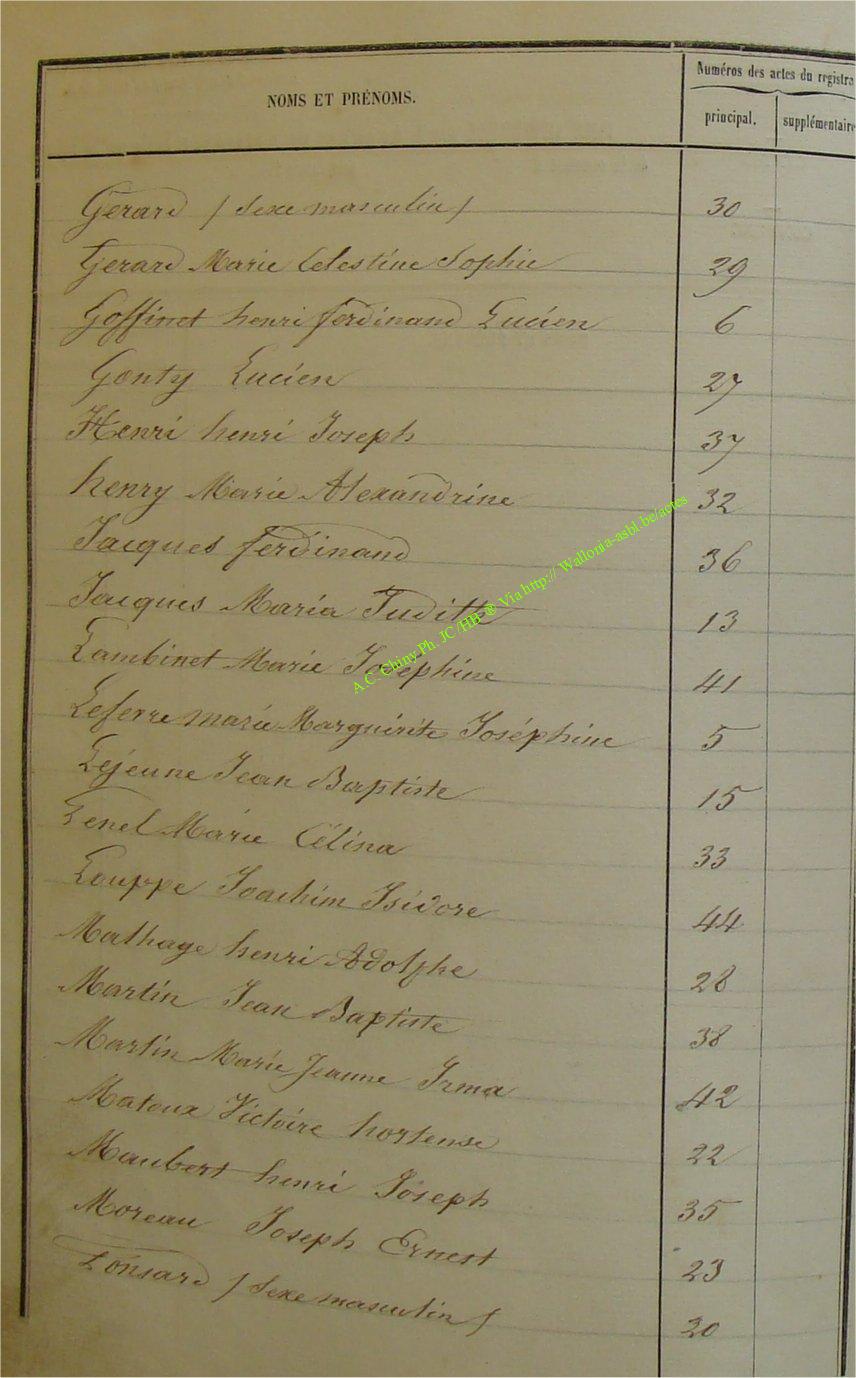 NOMS ET PRÉNOMS.
Numéros des actes du registre
principal.
supplémentaire
Gerard / sexe masculin / 30
Gerard Marie Celestine Sophie 29
Goffinet henri ferdinand Lucien 6
Gonty Lucien 27
Henri henri Joseph 37
henry Marie Alexandrine 32
Jacques ferdinand 36
Jacques Maria Juditte 13
Lambinet Marie Josephine 41
Lefevre marie Marguirite Joséphine 5
Lejeune Jean Baptiste 15
Lenel Marie Célina 33
Louppe Joachim Isidore 44
Mathage henri Adolphe 28
Martin Jean Baptiste 38
Martin Marie Jeanne Irma 42
Matoux Victoire hortense 22
Maubert henri Joseph 35
Moreau Joseph Ernest 23
/ sexe masculin / 20
A.C. Chiny Ph. JC /HB ® Via http:// Wallonia-asbl.be/actes